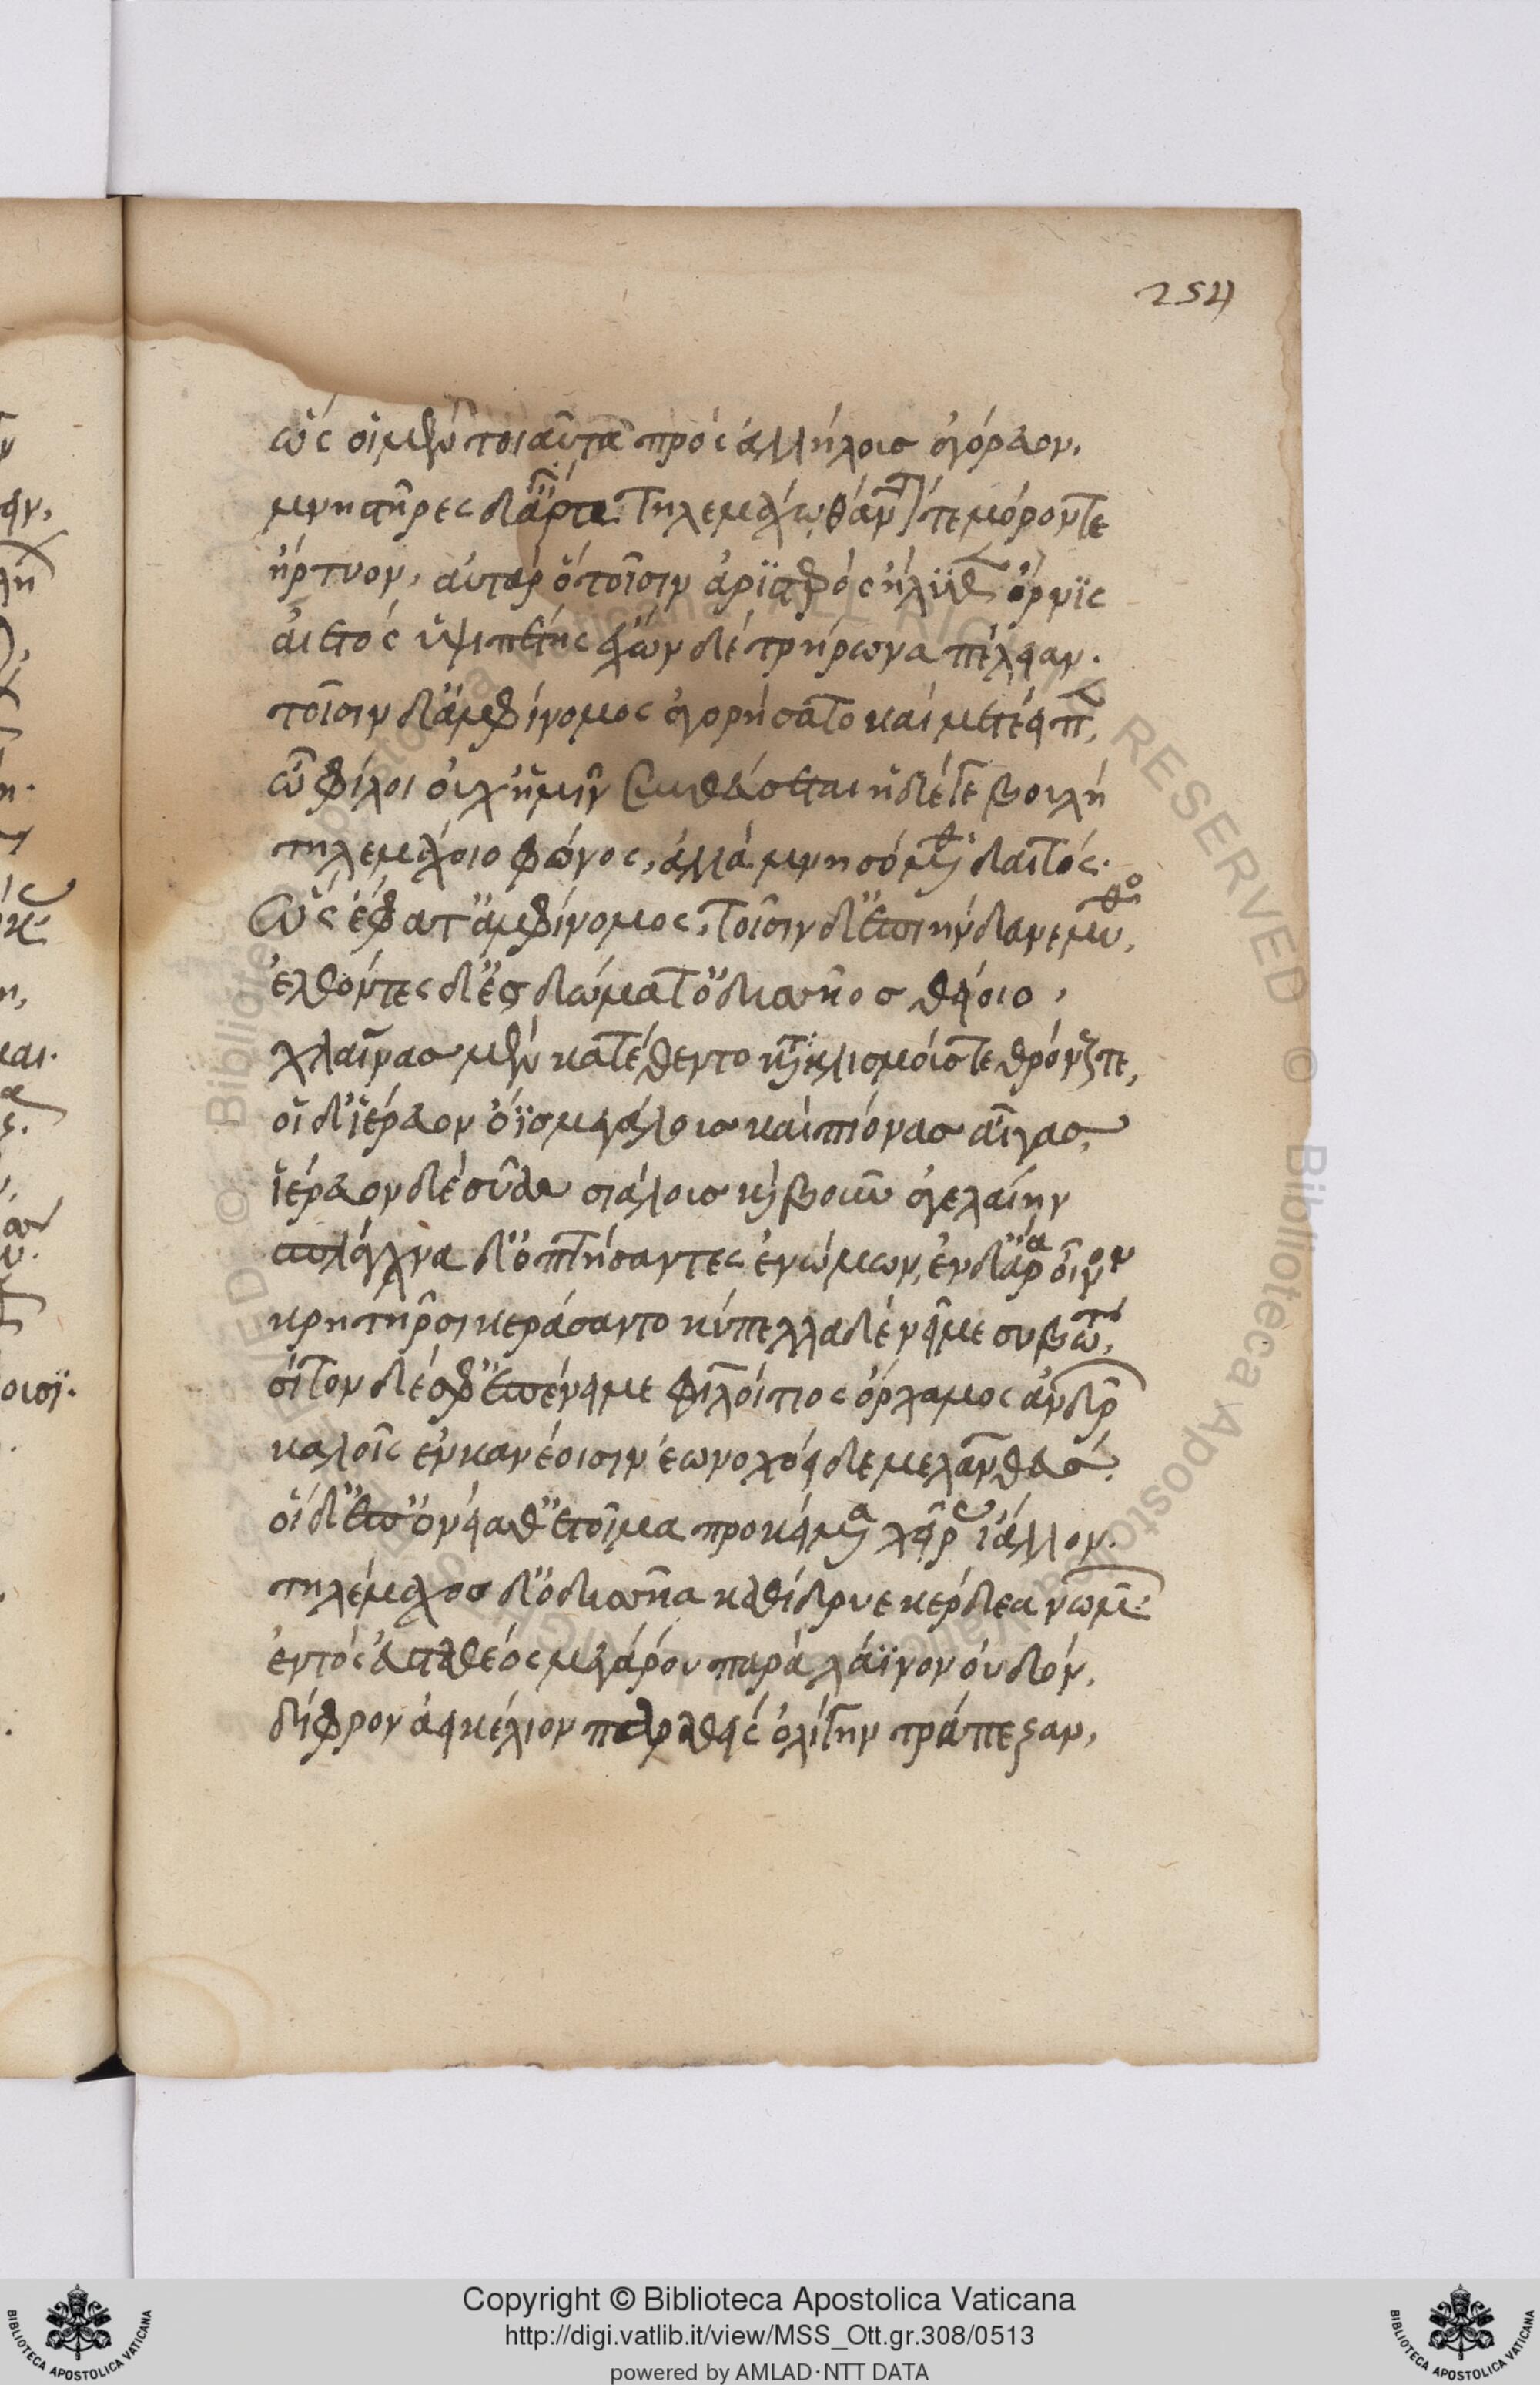 254
ὣς οἱ μὲν τοιαῦτα πρὸς ἀλλήλους ἀγόρευον.
μνηστῆρες δ' ἄρα τηλεμάχῳ θάνατόν τε μόρον τε
ἤρτυον, αὐτὰρ ὅ τοῖσιν ἀριστερὸς ἤλυθεν ὄρνις
αἰετὸς ὑψιπέτης ἔχων δὲ τρήρωνα πέλειαν.
τοῖσιν δ' ἀμφίνομος ἀγορήσατο καὶ μετέειπεν,
ὦ φίλοι οὐχ ἡμῖν συνθεύσεται ἥδε τε βουλή
τηλεμάχοιο φόνος, ἀλλὰ μνησόμεθα δαιτός.
Ὣς ἔφατ' ἀμφίνομος, τοῖσιν δ' ἐπιήνδανε μῦθος,
ἐλθόντες δ' ἐς δώματ' ὀδυσσῆος θείοιο,
χλαίνας μὲν κατέθεντο κατὰ κλισμούς τε θρόνους τε,
οἱ δ' ἱέρευον ὄϊς μεγάλους καὶ πίονας αἶγας,
ἱέρευον δὲ σύας σιάλους καὶ βοῦν ἀγελαίην
σπλάγχνα δ' ὀπτήσαντες ἐνώμων, ἐν δ' ἄρα οἶνον
κρητῆρσι κεράσαντο κύπελλα δὲ νεῖμε συβώτης,
σῖτον δέ σφ' ἐπένειμε φιλοίτιος ὄρχαμος ἀνδρῶν
καλοῖς ἐν κανέοισιν ἐωνοχόει δὲ μελανθεύς.
οἱ δ' ἐπ' ὀνείαθ' ἑτοῖμα προκείμενα χεῖρας ἴαλλον.
τηλέμαχος δ' ὀδυσσῆα καθίδρυε κέρδεα νωμῶν
ἐντὸς ἐυσταθέος μεγάρου παρὰ λάϊνον οὐδόν,
δίφρον ἀεικέλιον παραθεὶς ὀλίγην τράπεζαν,
Copyright © Biblioteca Apostolica Vaticana
http://digi.vatlib.it/view/MSS_Ott.gr.308/0513
powered by AMLAD·NTT DATA